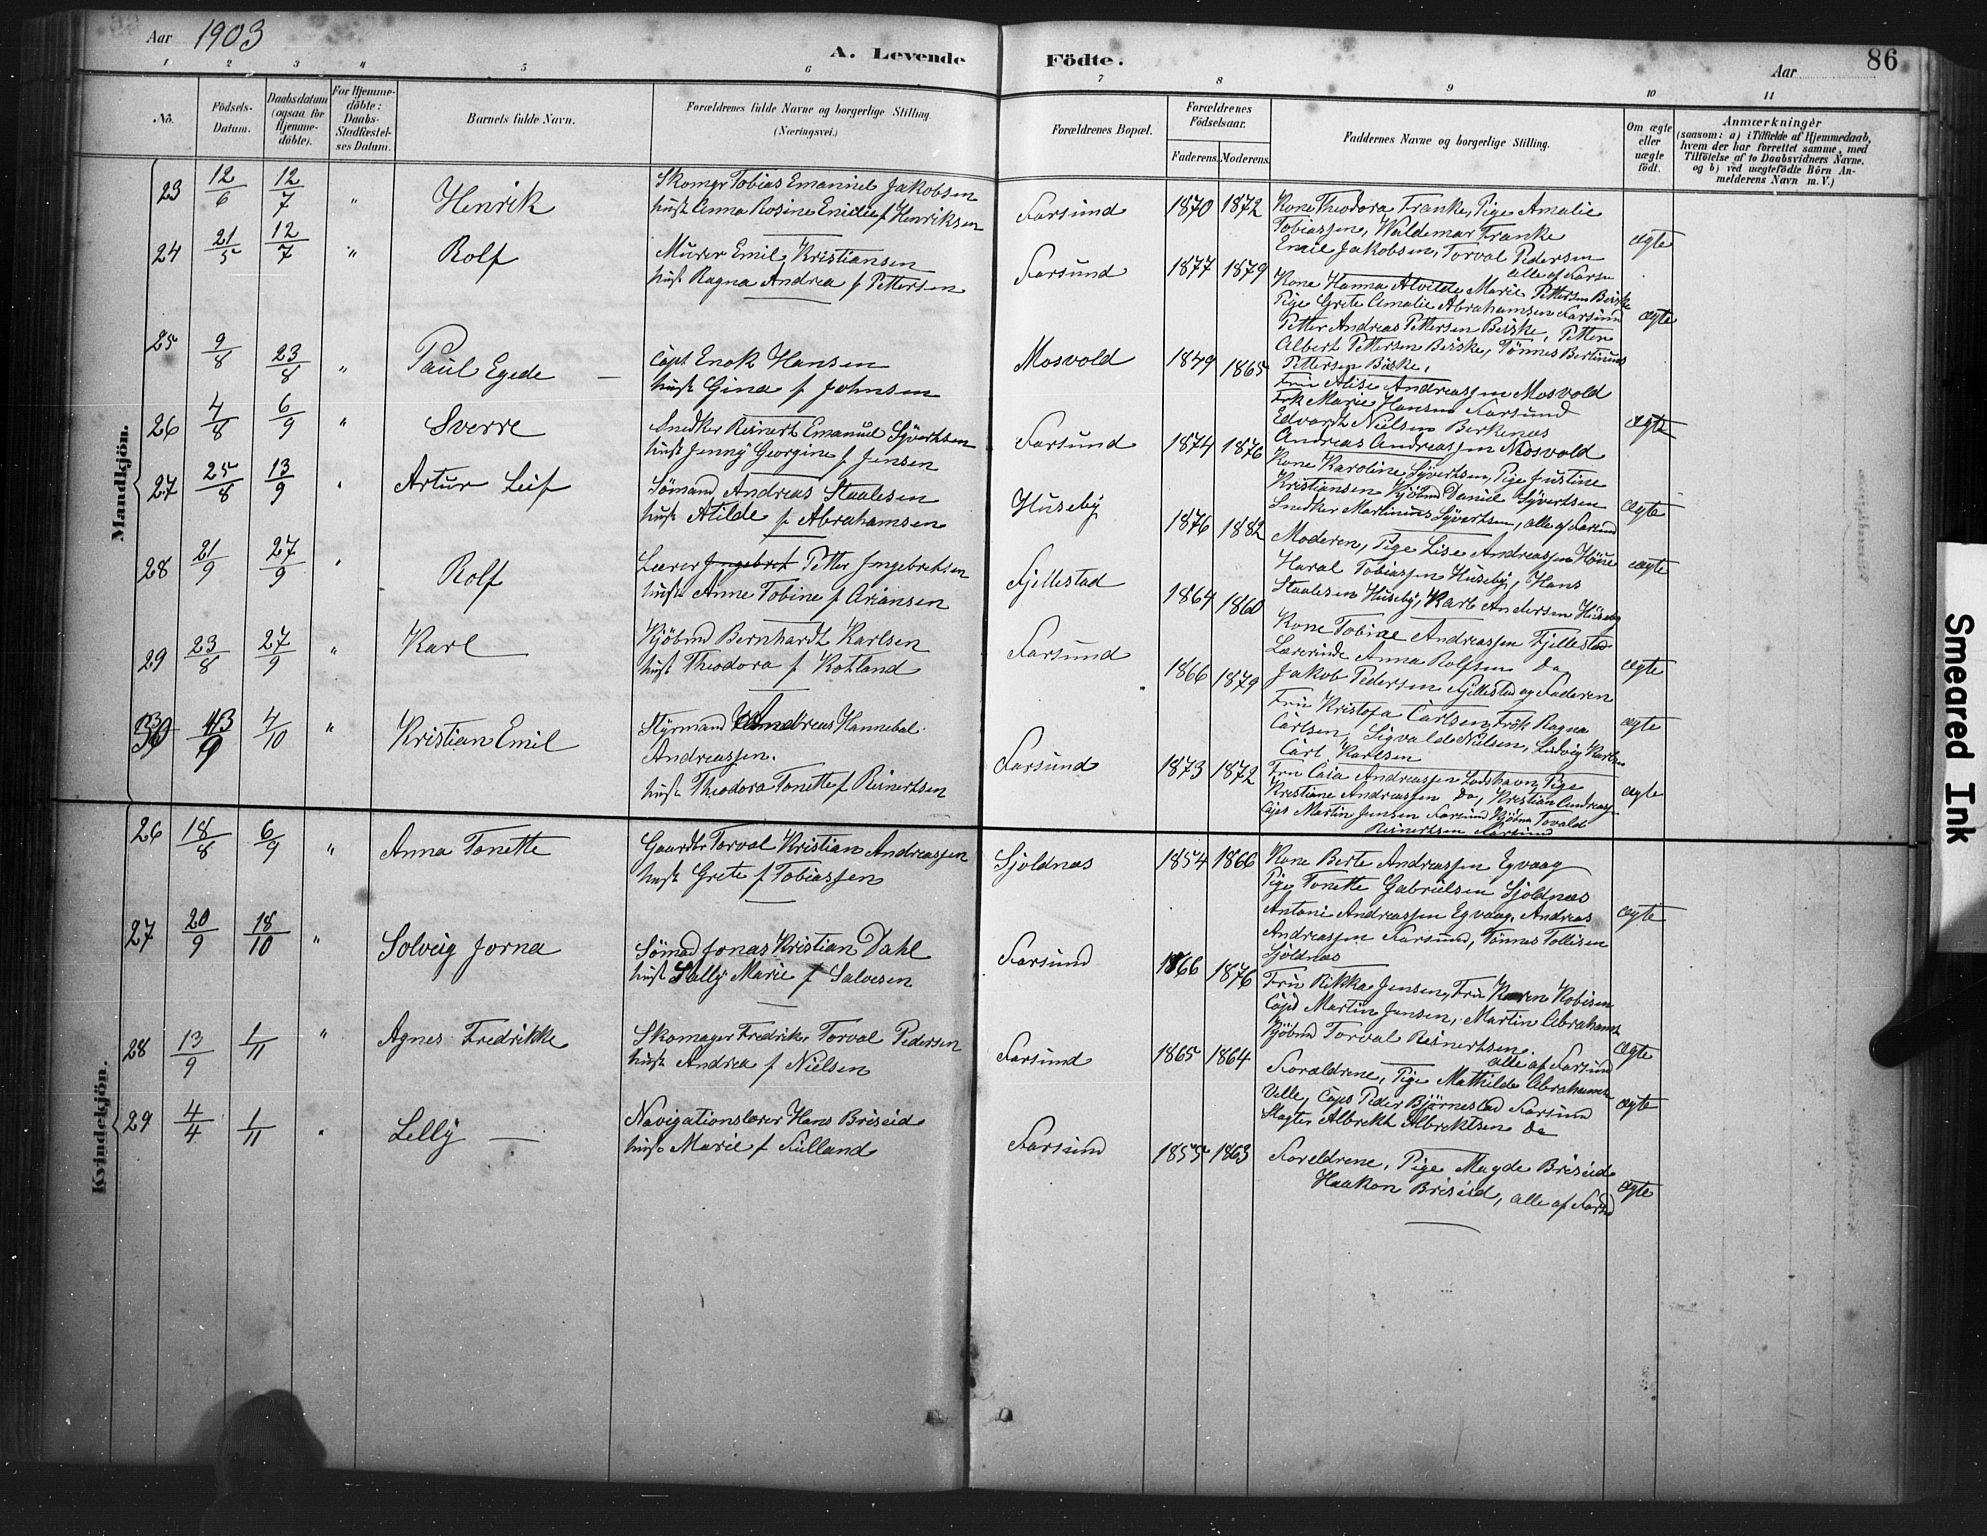 Aar 1903
A. Levende Födte.
86
Aar
1 2 3 4 5 6 7 8 9 10 11
No.
Födsels-Datum.
Daabsdatum (ogsaa for Hjemme-döbte).
For Hjemme-döbte: Daabs-Stadfæstel-ses Datum.
Barnets fulde Navn.
Forældrenes fulde Navne og borgerlige Stilling. (Næringsvei.)
Forældrenes Bopæl.
Forældrenes Födselsaar.
Faderens. Moderens.
Faddernes Navne og borgerlige Stilling.
Om ægte eller uægte født.
Anmærkninger (saasom: a) i Tilfælde af Hjemmedaab, hvem der har forrettet samme, med Tilföielse af to Daabsvidners Navne. og b) ved uægtefödte Börn An-melderens Navn m. V.)
Mandkjön.
23 12/6 12/7 " Henrik
Skomgr Tobias Emaniel Jakobsen
hust Anna Rosine Emilie f Henriksen
Farsund 1870 1872
Kone Theodora Franke, Pige Amalie
Tobiassen, Waldemar Franke
Emil Jakobsen, Torval Pedersen
alle af Farsu
ægte
24 21/5 12/7 " Rolf
Murer Emil Kristiansen
hust Ragna Andrea f Pettersen
Farsund 1877 1879
Kone Hanna Alvilde Marie Pettersen Biske
Pige Grete Amalie Abrahamsen Farsund
Petter Andreas Pettersen Biske, Petter
Albert Pettersen Biske, Tönnes Bertinius
Pettersen Biske,
ægte
25 9/8 23/8 " Paul Egede
Capt Enok Hansen
hust Gina f Johnsen
Mosvold 1849 1865
Fru Alise Andreassen Mosvold
Frk Marie Hansen Farsund
Edvardt Nielsen Berkenes
Andreas Andreassen Mosvold
ægte
26 4/8 6/9 " Sverre
Snedker Reinert Emanuel Syvertsen
hust Jenny Georgine f Jensen
Farsund 1874 1876
Kone Karoline Syvertsen, Pige Justine
Kristiansen Kjöbmd Daniel Syvertsen
Snedker Martinius Syvertsen, alle af Farsund
ægte
27 25/8 13/9 " Artur Leif
Sömand Andreas Staalesen
hust Atilde f Abrahamsen
Huseby 1876 1882
Moderen, Pige Lise Andreassen Höue
Haral Tobiassen Huseby, Hans
Staalesen Huseby, Karl Andersen Huseby
ægte
28 21/9 27/9 " Rolf
Lærer Ingebret Petter Ingebretsen
hust Anne Tobine f Oriansen
Fjellestad 1864 1860
Kone Tobine Andreassen Fjellestad
Lærerinde Anna Rolfsen Do
Jakob Pedersen Fjellestad og Faderen
ægte
29 23/8 27/9 " Karl
Kjöbmd Bernhardt Karlsen
hust Theodora f Kotland
Farsund 1866 1879
Fru Kristofa Carlsen, Frök Ragna
Carlsen, Sigvald Nielsen, Ludvig Karlsen
Carl Karlsen
ægte
30 13/9 4/10 " Kristian Emil
Styrmand Andreas Hannebal
Andreassen.
hust Theodora Tonette f Reinertsen
Farsund 1873 1872
Fru Caia Andreassen Lodshavn, Pige
Kristiane Andreassen Do, Kristian Andreass
Capt Martin Jensen Farsund Kjöbm Tovald
Reinertsen Farsund
ægte
Kvindekjön.
26 18/8 6/9 " Anna Tonette
Gaardbr Torval Kristian Andreassen
hust Grete f Tobiassen
Sjoldnæs 1854 1866
Kone Berte Andreassen Egvaag
Pige Tonette Gabrielsen Sjoldnæs
Antoni Andreassen Egvaag, Andreas
Andreassen Farsund, Tönnes Tollisen
Sjoldnæs
ægte
27 20/9 18/10 " Solveig Jorna
Sömad Jonas Kristian Dahl
hust Sally Marie f Salvesen
Farsund 1866 1876
Fru Rikka Jensen, Fru Karen Robisen
Capt Martin Jensen, Martin Abrahams
Kjöbmd Torval Reinertsen.
alle af Farsund
ægte
28 13/9 1/11 " Agnes Fredrikke
Skomager Fredrik Torval Pedersen
hust Andrea f Nielsen
Farsund 1865 1864
Forældrene, Pige Mathilde Abrahams
Velle, Capt Peder Bjørnestad Farsund
Slagter Albrekt Albrektsen Do
ægte
29 4/4 1/11 " Lelly
Navigationslærer Hans Briseid
hust Marie f Fulland
Farsund 1855 1863
Foreldrene, Pige Magde Briseid
Haakon Briseid, alle af Farsud
ægte
Smeared Ink